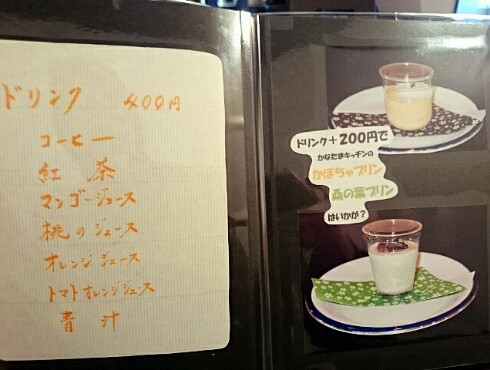 ドリンク 400円
コーヒー
紅茶
マンゴージュース
桃のジュース
オレンジジュース
トマトオレンジジュース
青汁
ドリンク+200円で
かなたまキッチンの
かぼちゃプリン
桑の葉プリン
はいかが?